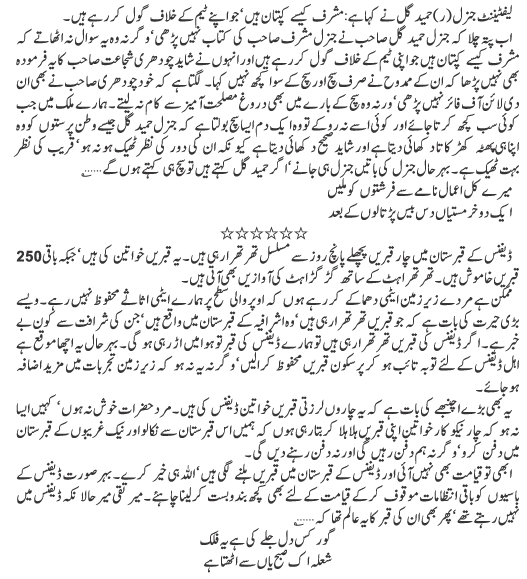 لیفٹیننٹ جنرل (ر) حمید گل نے کہا ہے: مشرف کیسے کپتان ہیں' جو اپنے ٹیم کے خلاف گول کر رہے ہیں۔
اب پتہ چلا کہ جنرل حمید گل صاحب نے جنرل مشرف صاحب کی کتاب نہیں پڑھی' وگرنہ وہ یہ سوال نہ اٹھاتے کہ
مشرف کیسے کپتان ہیں جو اپنی ٹیم کے خلاف گول کر رہے ہیں اور انہوں نے شاید چودھری شجاعت صاحب کا یہ فرمودہ
بھی نہیں پڑھا کہ ان کے ممدوح نے صرف سچ اور سچ کے سوا کچھ نہیں کہا۔ لگتا ہے کہ خود چودھری صاحب نے بھی ان
دی لائن آف فائر نہیں پڑھی' ورنہ وہ سچ کے بارے میں بھی دروغ مصلحت آمیز سے کام نہ لیتے۔ ہمارے ملک میں جب
کوئی سب کچھ کرتا جائے اور کوئی اسے نہ روکے تو وہ ایک دم ایسا سچ بولتا ہے کہ جنرل حمید گل جیسے وطن پرستوں کو وہ
اپنا ہی پھٹہ کھڑکاتا دکھائی دیتا ہے اور شاید صحیح دکھائی دیتا ہے کیونکہ ان کی دور کی نظر ٹھیک ہو نہ ہو' قریب کی نظر
بہت ٹھیک ہے۔ بہرحال جنرل کی باتیں جنرل ہی جانے' اگر حمید گل کہتے ہیں تو سچ ہی کہتے ہوں گے......
میرے کل اعمال نامے سے فرشتوں کو ملیں
ایک دو خرمستیاں دس بیس پڑتالوں کے بعد
☆☆☆☆☆☆
ڈیفنس کے قبرستان میں چار قبریں پچھلے پانچ روز سے مسلسل تھرتھرا رہی ہیں۔ یہ قبریں خواتین کی ہیں' جبکہ باقی 250
قبریں خاموش ہیں۔ تھرتھراہٹ کے ساتھ گڑگڑاہٹ کی آوازیں بھی آتی ہیں۔
ممکن ہے مردے زیرزمین ایٹمی دھماکے کر رہے ہوں کہ اوپر والی سطح پر ہمارے ایٹمی اثاثے محفوظ نہیں رہے۔ ویسے
بڑی حیرت کی بات ہے کہ جو قبریں تھرتھرا رہی ہیں' وہ اشرافیہ کے قبرستان میں واقع ہیں' جن کی شرافت سے کون بے
خبر ہے۔ اگر ڈیفنس کی قبریں تھرتھرا رہی ہیں تو ہمارے ڈیفنس کی قبر تو ہوا میں اڑ رہی ہو گی۔ بہرحال یہ اچھا موقع ہے
اہل ڈیفنس کے لئے توبہ تائب ہو کر پرسکون قبریں محفوظ کرا لیں' وگرنہ یہ نہ ہو کہ زیرزمین تجربات میں مزید اضافہ
ہو جائے۔
یہ بھی بڑے اچنبھے کی بات ہے کہ یہ چاروں لرزتی قبریں خواتین ڈیفنس کی ہیں۔ مرد حضرات خوش نہ ہوں' کہیں ایسا
نہ ہو کہ چار نیکوکار خواتین اپنی قبریں ہلا ہلا کر بتا رہی ہوں کہ ہمیں اس قبرستان سے نکالو اور نیک غریبوں کے قبرستان
میں دفن کرو' وگرنہ ہم دفن رہیں گی اور نہ دفن رہنے دیں گی۔
ابھی تو قیامت بھی نہیں آئی اور ڈیفنس کے قبرستان میں قبریں ہلنے لگی ہیں' اللہ ہی خیر کرے۔ بہرصورت ڈیفنس کے
باسیوں کو باقی انتظامات موقوف کر کے قیامت کے لئے بھی کچھ بندوبست کر لینا چاہئے۔ میر تقی میر حالانکہ ڈیفنس میں
نہیں رہتے تھے' پھر بھی ان کی قبر کا یہ عالم تھا کہ......
گور کس دل جلے کی ہے یہ فلک
شعلہ اک صبح یاں سے اٹھتا ہے